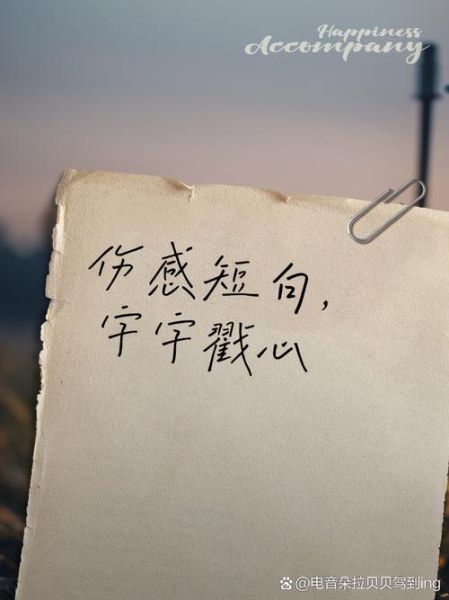 Happiness
Accompany
伤感短句，
字字戳心
@电音朵拉贝贝驾到ing